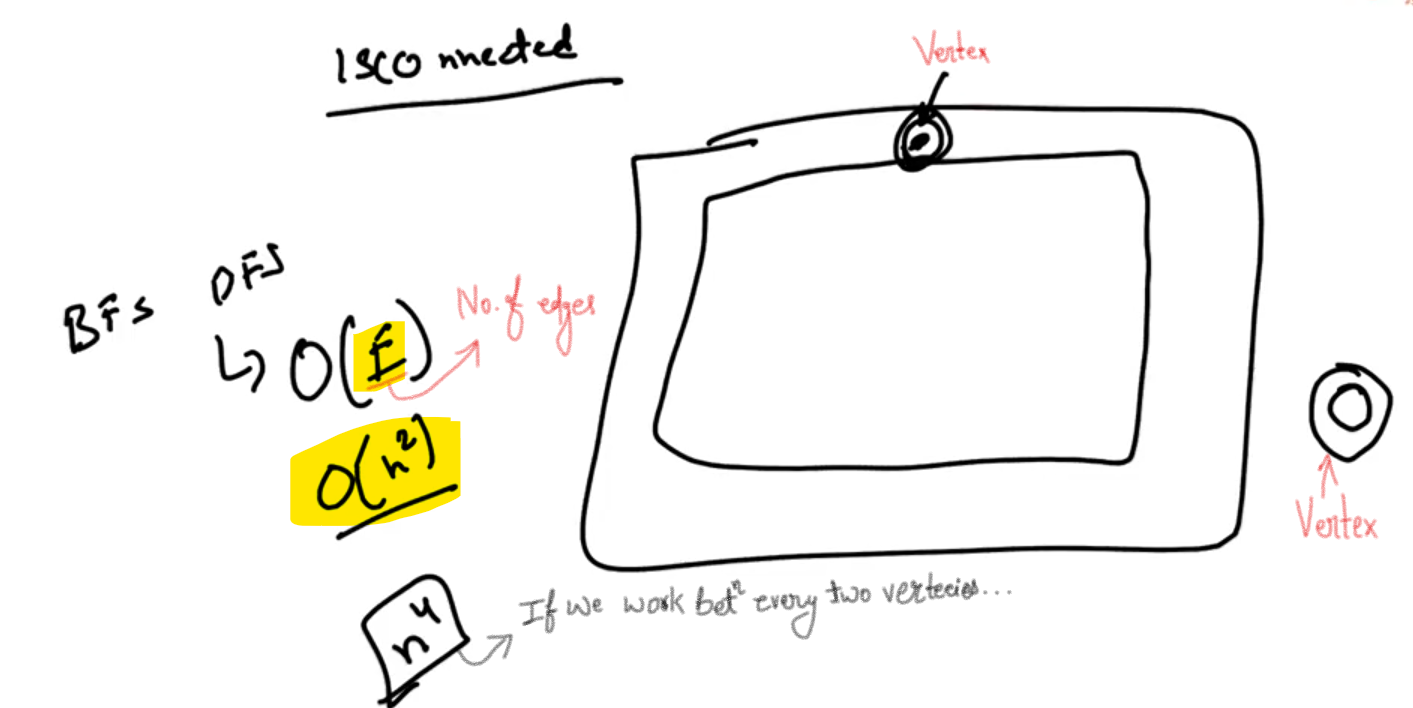 ISCOnnected
Vertex
BFS DFS
↳ O(E) → No. of edges
O(n²)
Vertex
n⁴ → If we work betⁿ every two vertecies...